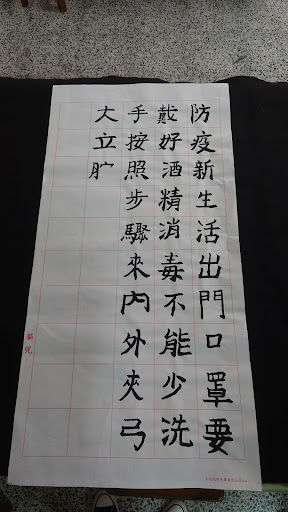 防疫新生活出門口罩要
戴好酒精消毒不能少洗
手按照步驟來內外夾弓
大立